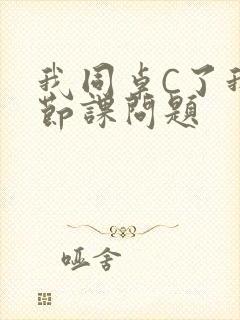 我同桌C了我
节课问题
哑舍